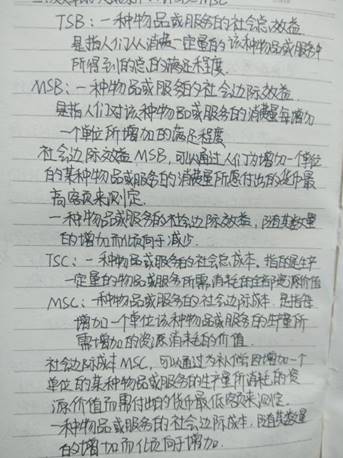 TSB：一种物品或服务的社会总效益
是指人们从消费一定量的该种物品或服务中
所得到的总的满足程度.
MSB：一种物品或服务的社会边际效益
是指人们对该种物品或服务的消费量每增加
一个单位所增加的满足程度
社会边际效益MSB,可以通过人们为增加一个单位
的某种物品或服务的消费量所愿付出的货币最
高额度来测定.
一种物品或服务的社会边际效益,随其数量
的增加而倾向于减少.
TSC：一种物品或服务的社会总成本。指在生产
一定量的物品或服务所需消耗的全部资源价值
MSC：一种物品或服务的社会边际成本.是指每
增加一个单位该种物品或服务的生产量所
需增加的资源消耗的价值.
社会边际成本MSC,可以通过为补偿因增加一个
单位的某种物品或服务的生产量所消耗的资
源价值而需付出的货币最低额度来测定.
一种物品或服务的社会边际成本,随其数量
的增加而倾向于增加.